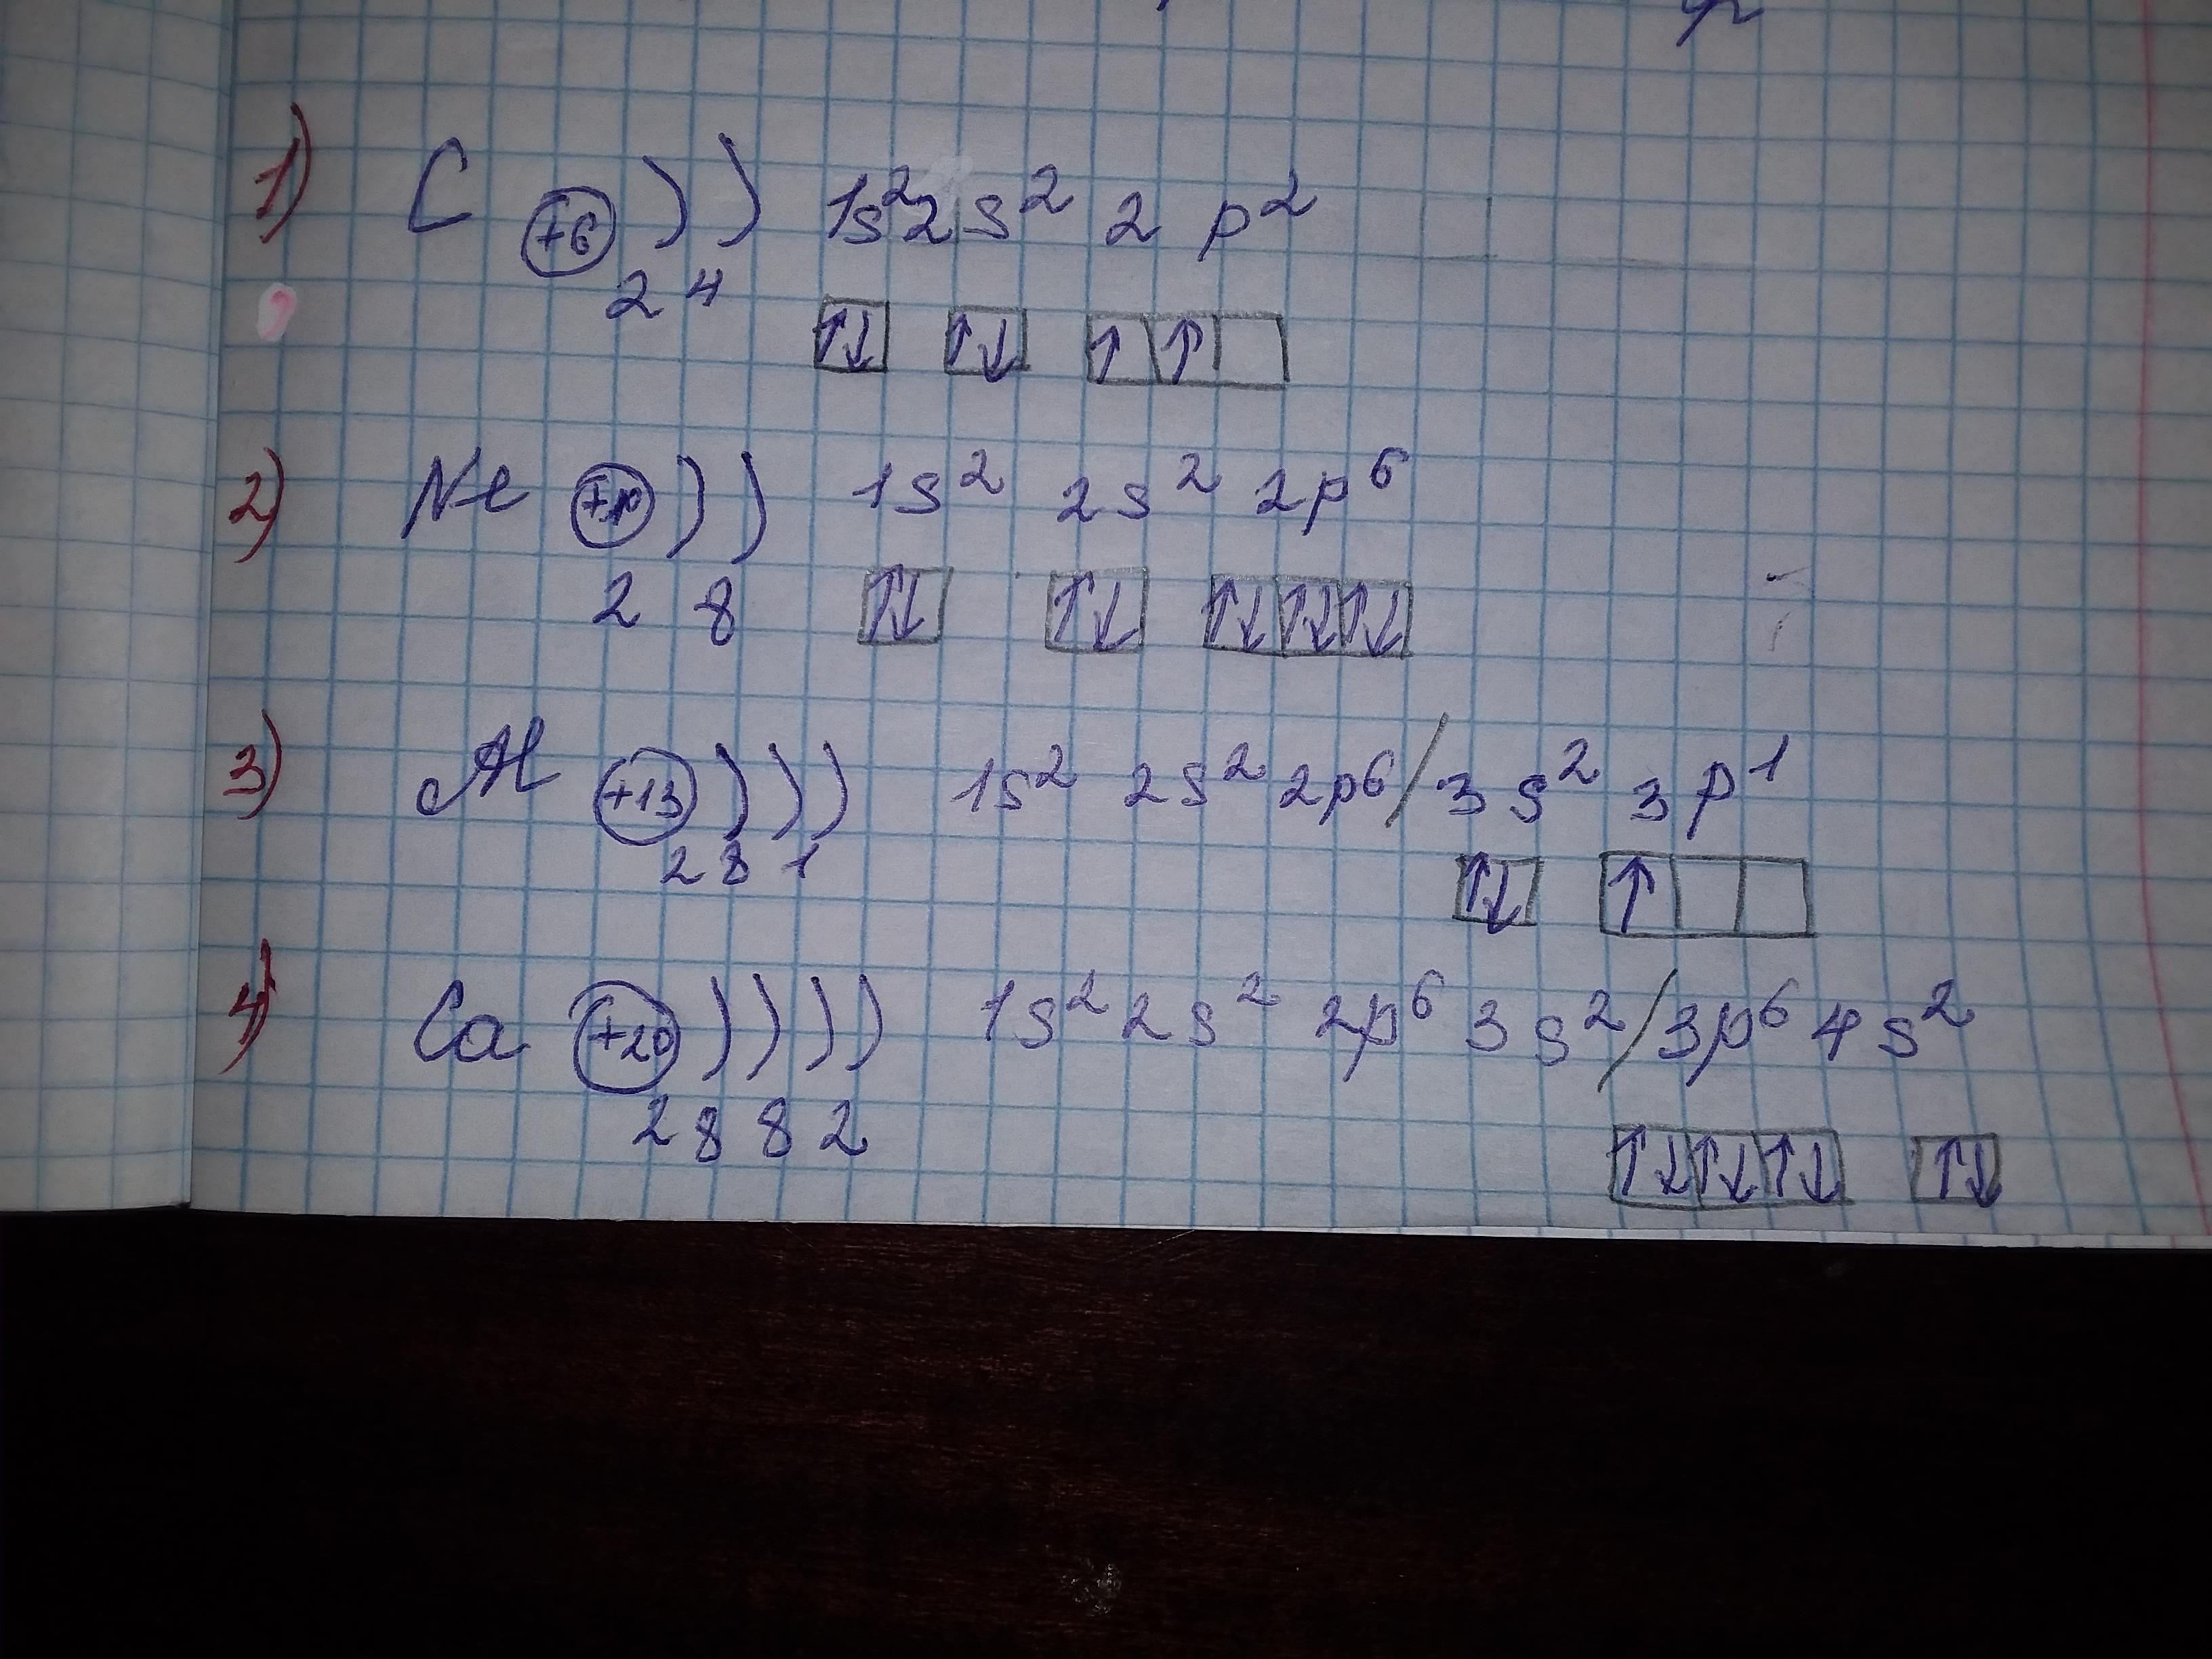 1) C +6 ) ) 1s² 2s² 2p²
2 4
↑↓ ↑↓ ↑ ↑
2) Ne +10 ) ) 1s² 2s² 2p⁶
2 8
↑↓ ↑↓ ↑↓ ↑↓ ↑↓
3) Al +13 ) ) ) 1s² 2s² 2p⁶ / 3s² 3p¹
2 8 1
↑↓ ↑
4) Ca +20 ) ) ) ) 1s² 2s² 2p⁶ 3s² / 3p⁶ 4s²
2 8 8 2
↑↓ ↑↓ ↑↓ ↑↓